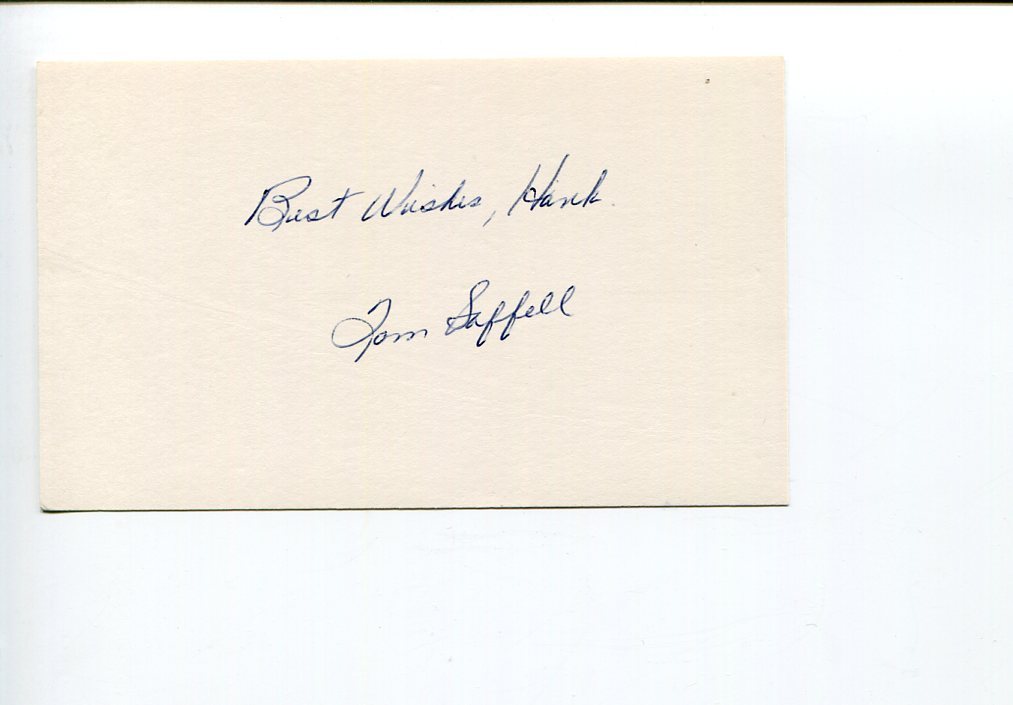 Best Wishes, Hank
Tom Saffell